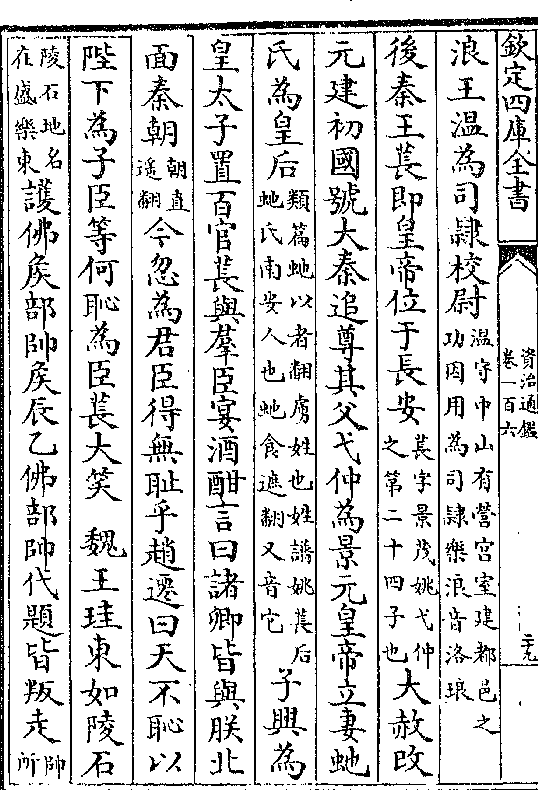 欽定四庫全書
資治通鑑
卷一百六
浪王溫為司隷校尉溫守中山有營宮室建都邑之功因用為司隷樂浪音洛琅
後秦王萇即皇帝位于長安萇字景茂姚弋仲之第二十四子也大赦改
元建初國號大秦追尊其父弋仲為景元皇帝立妻虵
氏為皇后類篇虵以者翻虜姓也姓譜姚萇后虵氏南安人也虵食遮翻又音它子興為
皇太子置百官萇與羣臣宴酒酣言曰諸卿皆與朕北
面秦朝朝直遥翻今忽為君臣得無耻乎趙遷曰天不恥以
陛下為子臣等何恥為臣萇大笑　魏王珪東如陵石
陵石地名在盛樂東護佛矦部帥矦辰乙佛部帥代題皆叛走帥所